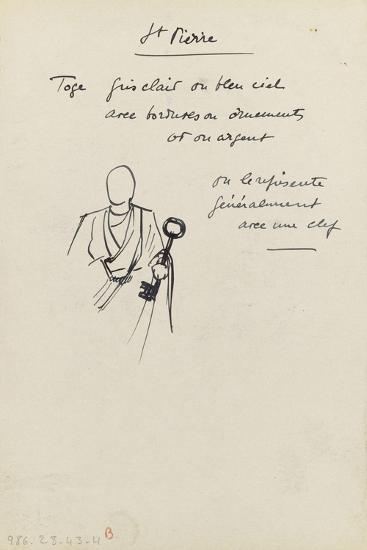 St Pierre
Toge gris clair ou bleu ciel
avec bordures ou ornements
or ou argent
on le représente
généralement
avec une clef
986.28.43-4 B